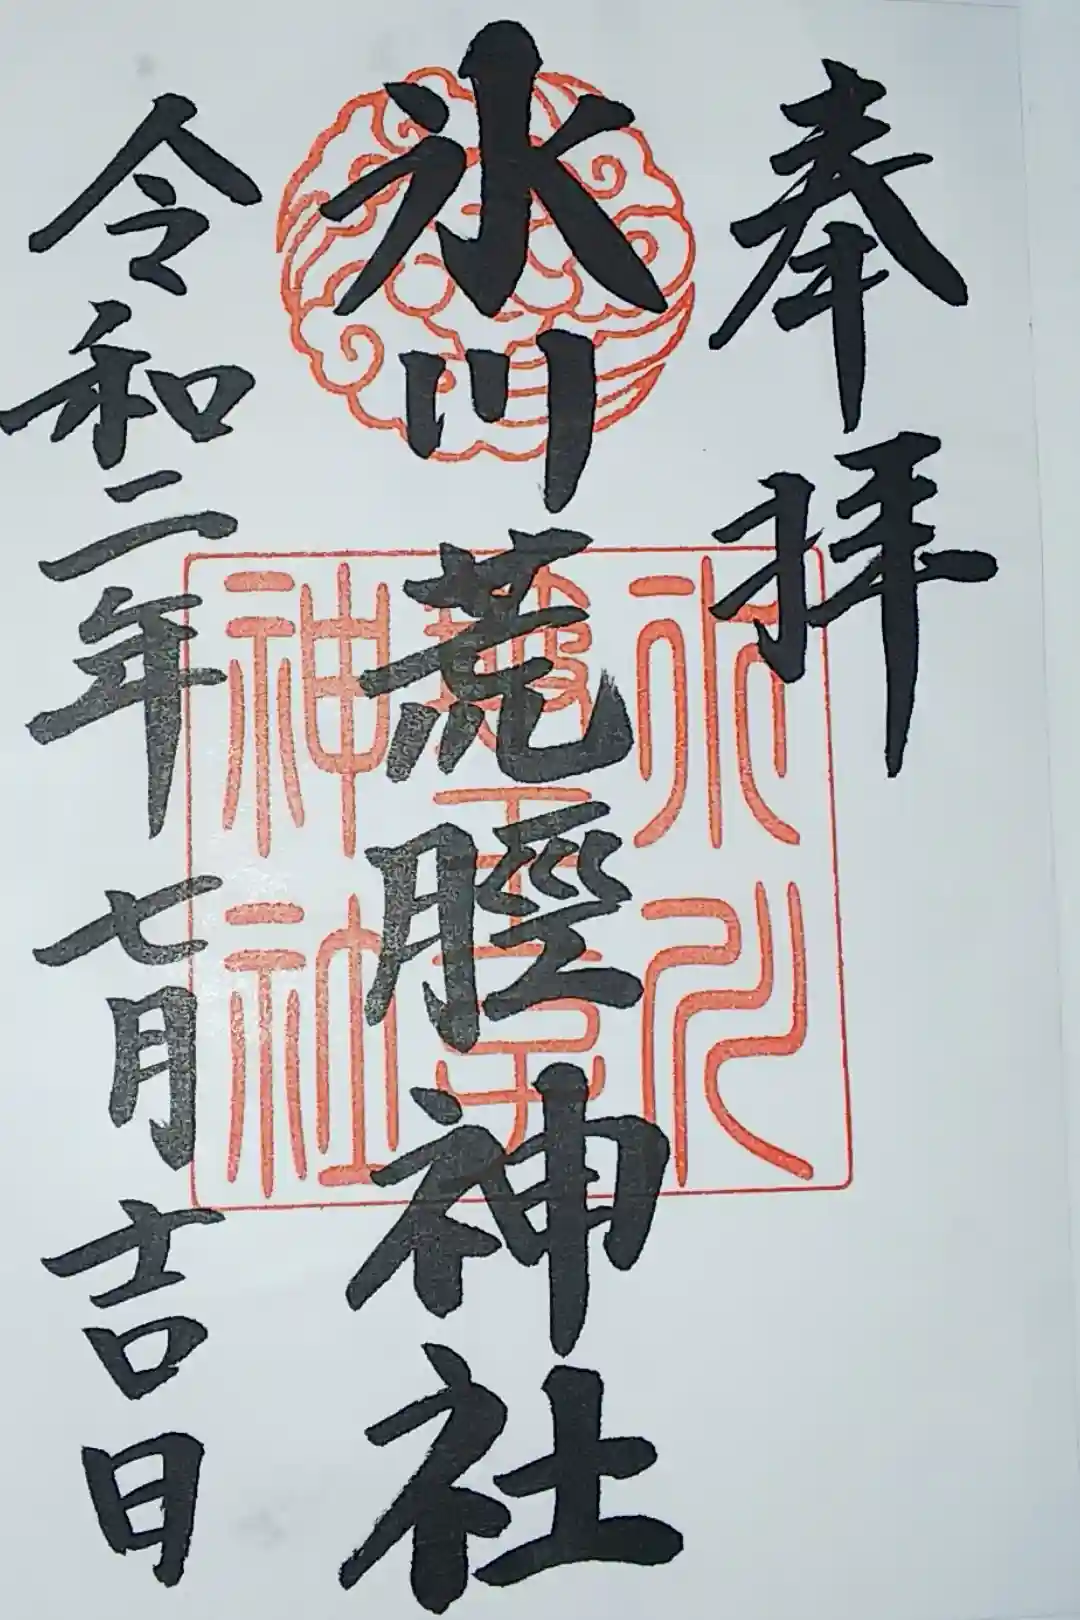 奉拝
氷川荒脛神社
令和二年七月吉日
氷川
神社